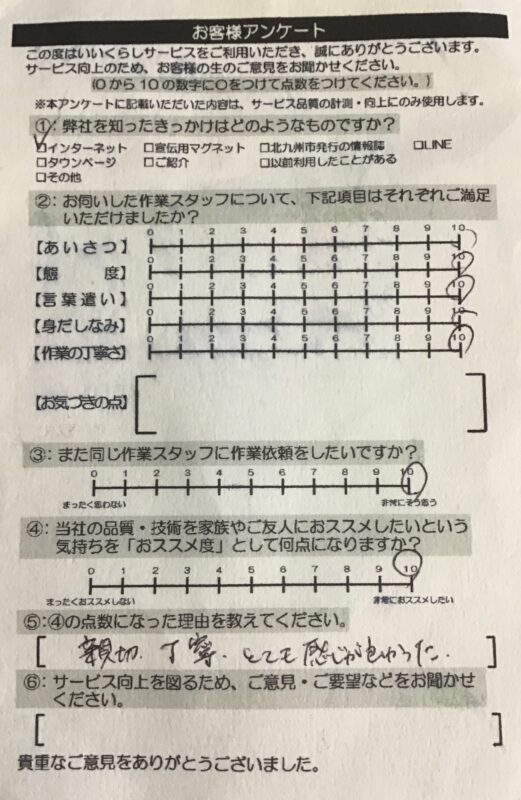 お客様アンケート
この度はいいくらしサービスをご利用いただき、誠にありがとうございます。
サービス向上のため、お客様の生のご意見をお聞かせください。
(0から10の数字に○をつけて点数をつけてください。)
※本アンケートに記載いただいた内容は、サービス品質の計測・向上にのみ使用します。
①: 弊社を知ったきっかけはどのようなものですか?
□インターネット □宣伝用マグネット □北九州市発行の情報誌 □LINE
□タウンページ □ご紹介 □以前利用したことがある
□その他
②: お伺いした作業スタッフについて、下記項目はそれぞれご満足
いただけましたか?
【あいさつ】 0 1 2 3 4 5 6 7 8 9 10
【態度】 0 1 2 3 4 5 6 7 8 9 10
【言葉遣い】 0 1 2 3 4 5 6 7 8 9 10
【身だしなみ】 0 1 2 3 4 5 6 7 8 9 10
【作業の丁寧さ】 0 1 2 3 4 5 6 7 8 9 10
【お気づきの点】
③: また同じ作業スタッフに作業依頼をしたいですか?
0 1 2 3 4 5 6 7 8 9 10
まったく思わない 非常にそう思う
④: 当社の品質・技術を家族やご友人におススメしたいという
気持ちを「おススメ度」として何点になりますか?
0 1 2 3 4 5 6 7 8 9 10
まったくおススメしない 非常におススメしたい
⑤: ④の点数になった理由を教えてください。
親切. 丁寧. とても感じが良かった.
⑥: サービス向上を図るため、ご意見・ご要望などをお聞かせ
ください。
貴重なご意見をありがとうございました。